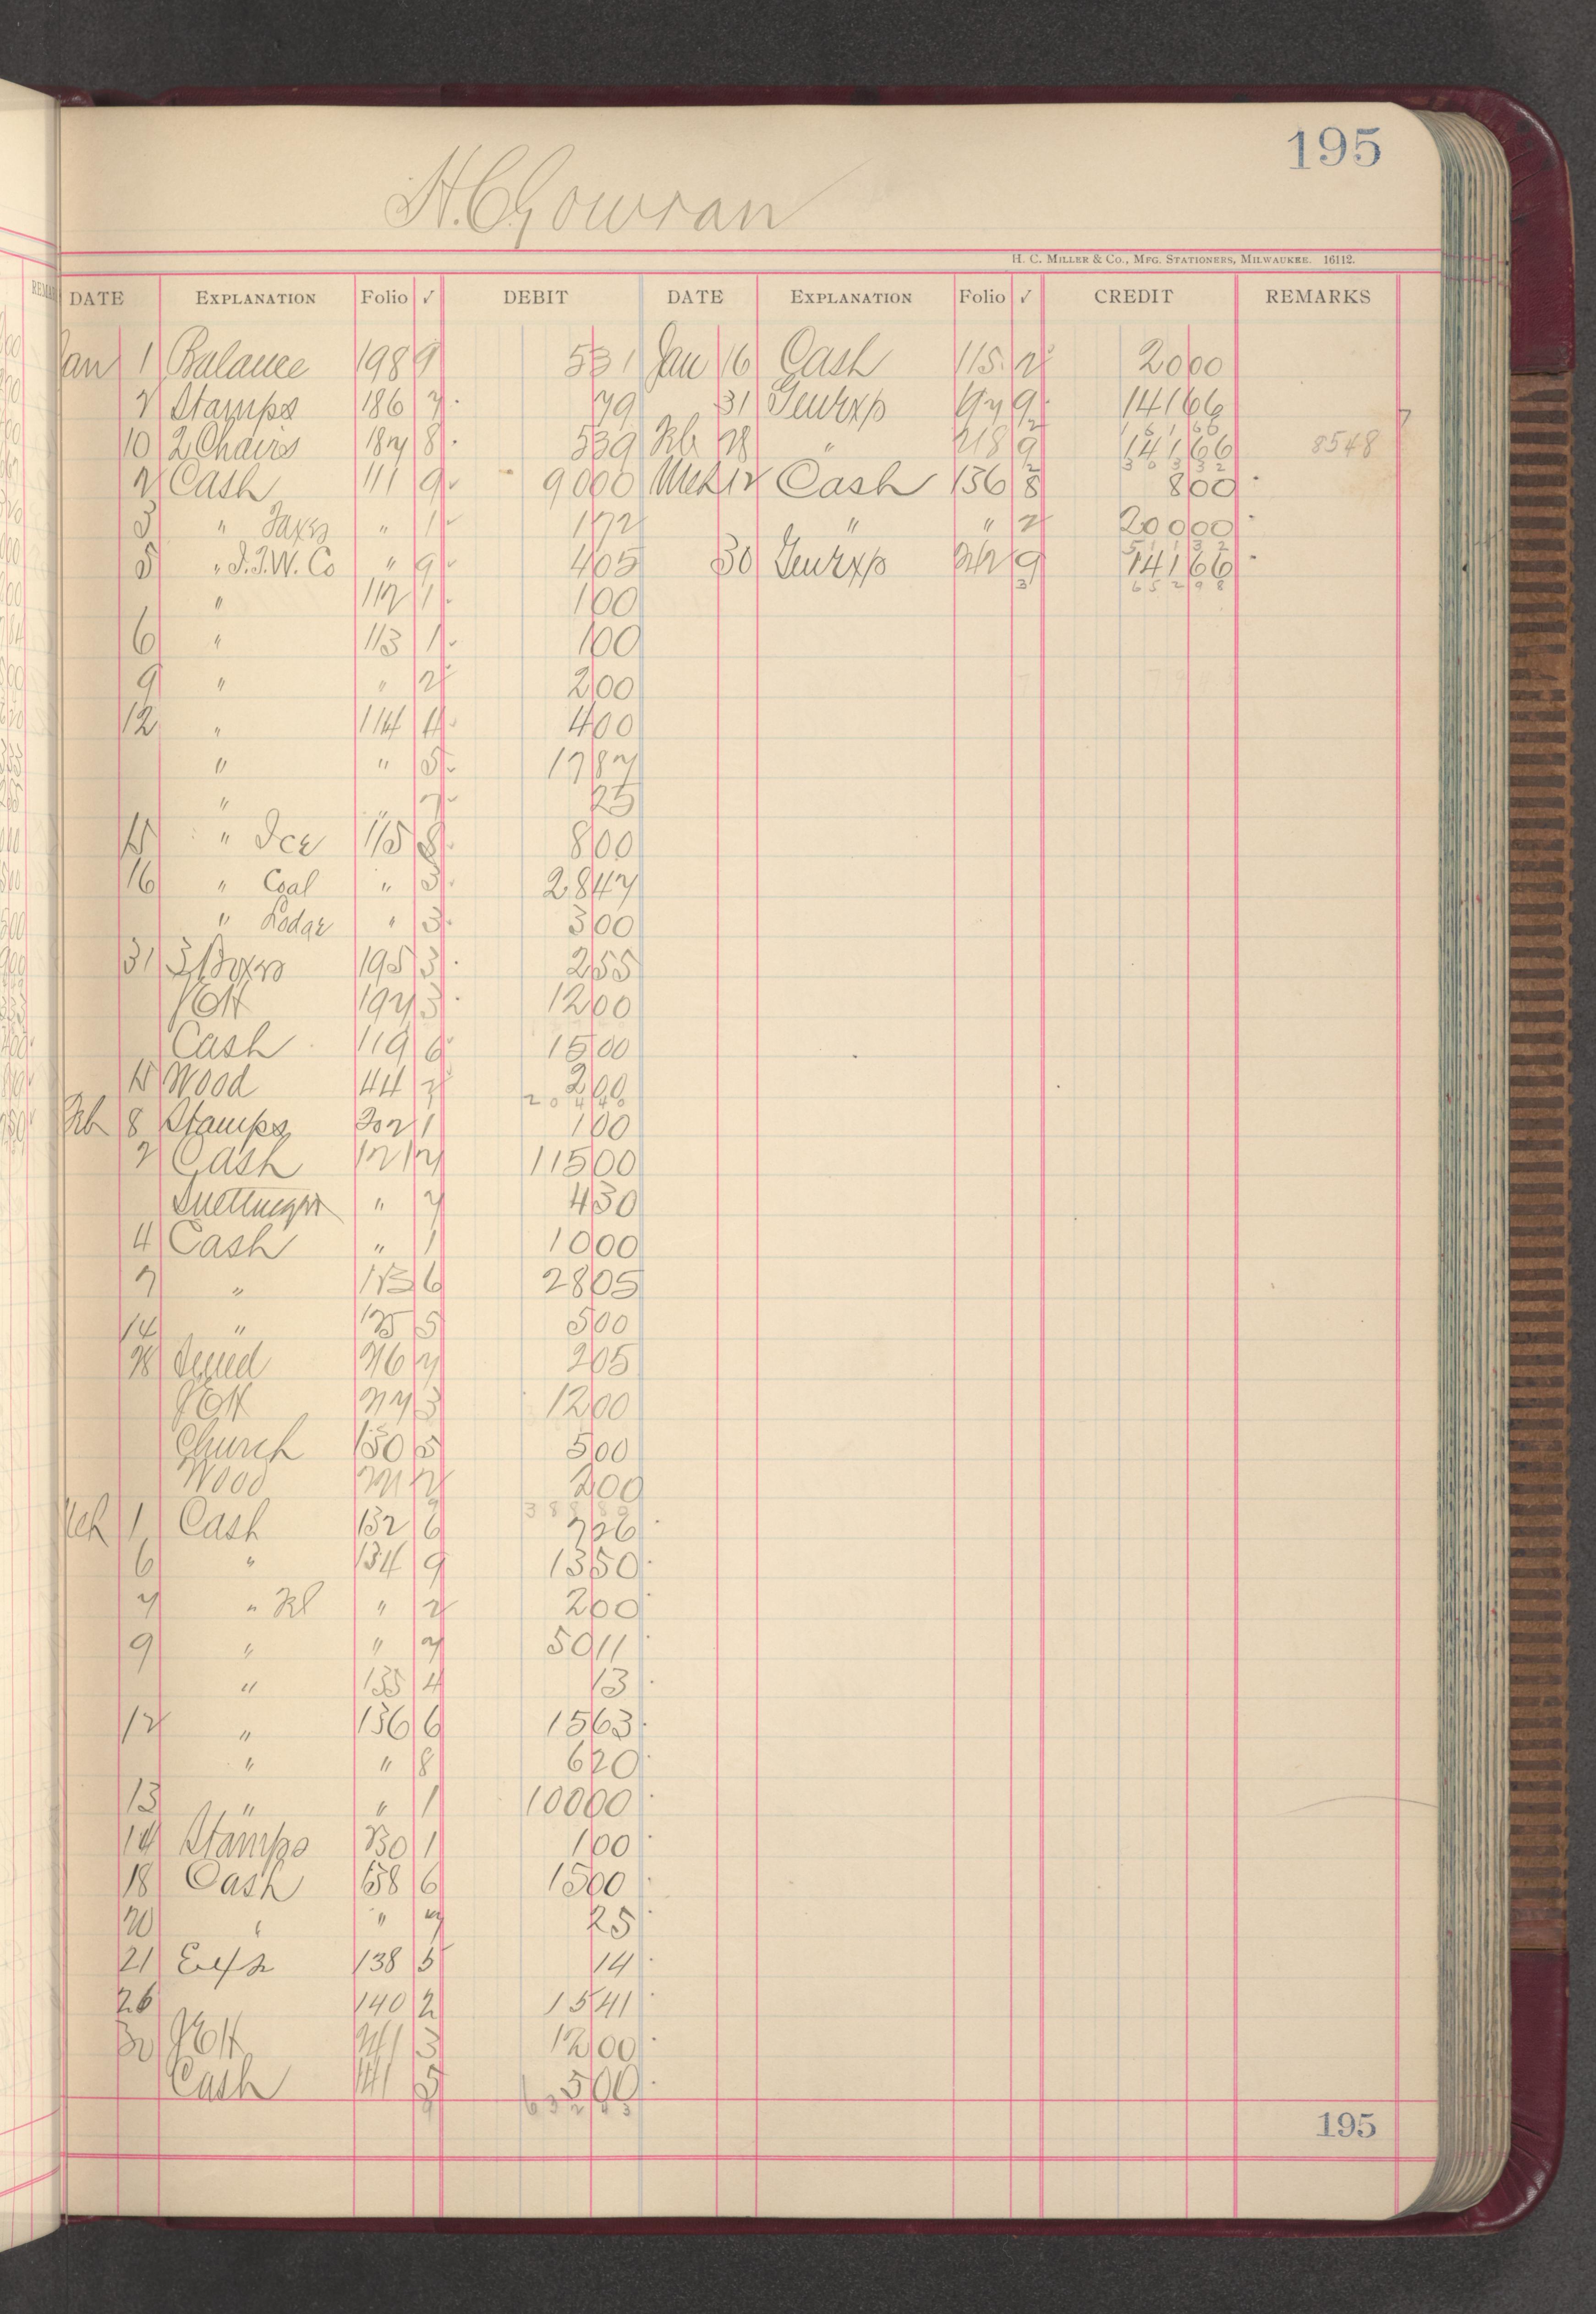 195
H. C. Gowran
H. C. MILLER & CO., MFG. STATIONERS, MILWAUKEE. 16112.
DATE EXPLANATION Folio ✓ DEBIT DATE EXPLANATION Folio ✓ CREDIT REMARKS
Jan 1 Balance 198 9 531 Jan 16 Cash 115 2 2000
2 Stamps 186 7 79 31 Genl Exp 197 9 14166
16166
10 2 Chairs 187 8 539 Feb 28 " 218 9 14166 8548
30332
2 Cash 111 9 9000 Mch 12 Cash 136 8 800
3 " Taxes " 1 172 " " 2 20000
51132
5 " I.I.W. Co " 9 405 30 Genl Exp 242 9 14166
3 65298
" 112 1 100
6 " 113 1 100
9 " " 2 200
12 " 114 4 400
" " 5 1787
" " 7 25
15 " Ice 115 8 800
16 " Coal " 3 2847
" Lodge " 3 300
31 3 Boxes 195 3 255
JEH 197 3 1200
Cash 119 6 1500
15 Wood 44 2 200
20440
Feb 8 Stamps 202 1 100
2 Cash 121 7 11500
" 7 430
4 Cash " 1 1000
7 " 123 6 2805
14 " 125 5 500
28 216 7 205
JEH 217 3 1200
Church 130 5 500
Wood 2 200
38880
Mch 1 Cash 132 6 726
6 " 134 9 1350
7 " " 2 200
9 " " 7 5011
" 135 4 13
12 " 136 6 1563
" " 8 620
13 " " 1 10000
14 Stamps 230 1 100
18 Cash 138 6 1500
20 " " 7 25
21 Exp 138 5 14
26 140 2 1541
30 JEH 241 3 1200
Cash 141 5 500
9 63243
195